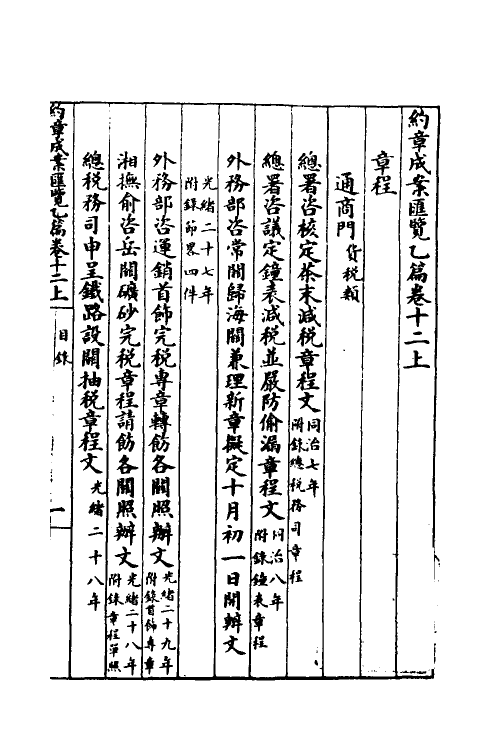 約章成案匯覽乙篇卷十二上
章程
通商門 貨税類
總署咨核定茶末減税章程文 同治七年 附錄總税務司章程
總署咨議定鐘表減税並嚴防偷漏章程文 同治八年 附錄鐘表章程
外務部咨常關歸海關兼理新章擬定十月初一日開辦文
光緒二十七年 附錄節畧四件
外務部咨運銷首飾完税專章轉飭各關照辦文 光緒二十九年 附錄首飾專章
湘撫俞咨岳關礦砂完税章程請飭各關照辦文 光緒二十八年 附錄章程單照
總税務司申呈鐵路設關抽税章程文 光緒二十八年
約章成案匯覽乙篇卷十二上 目錄 一